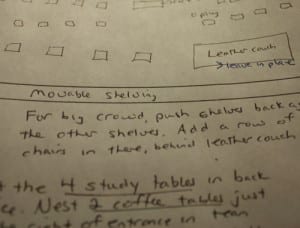 Leather couch
→ leave in place
Movable shelving
For big crowd, push shelves back as
the other shelves. Add a row of
chairs in there, behind leather couch
the 4 study tables in back
Nest 2 coffee tables just
right of entrance in